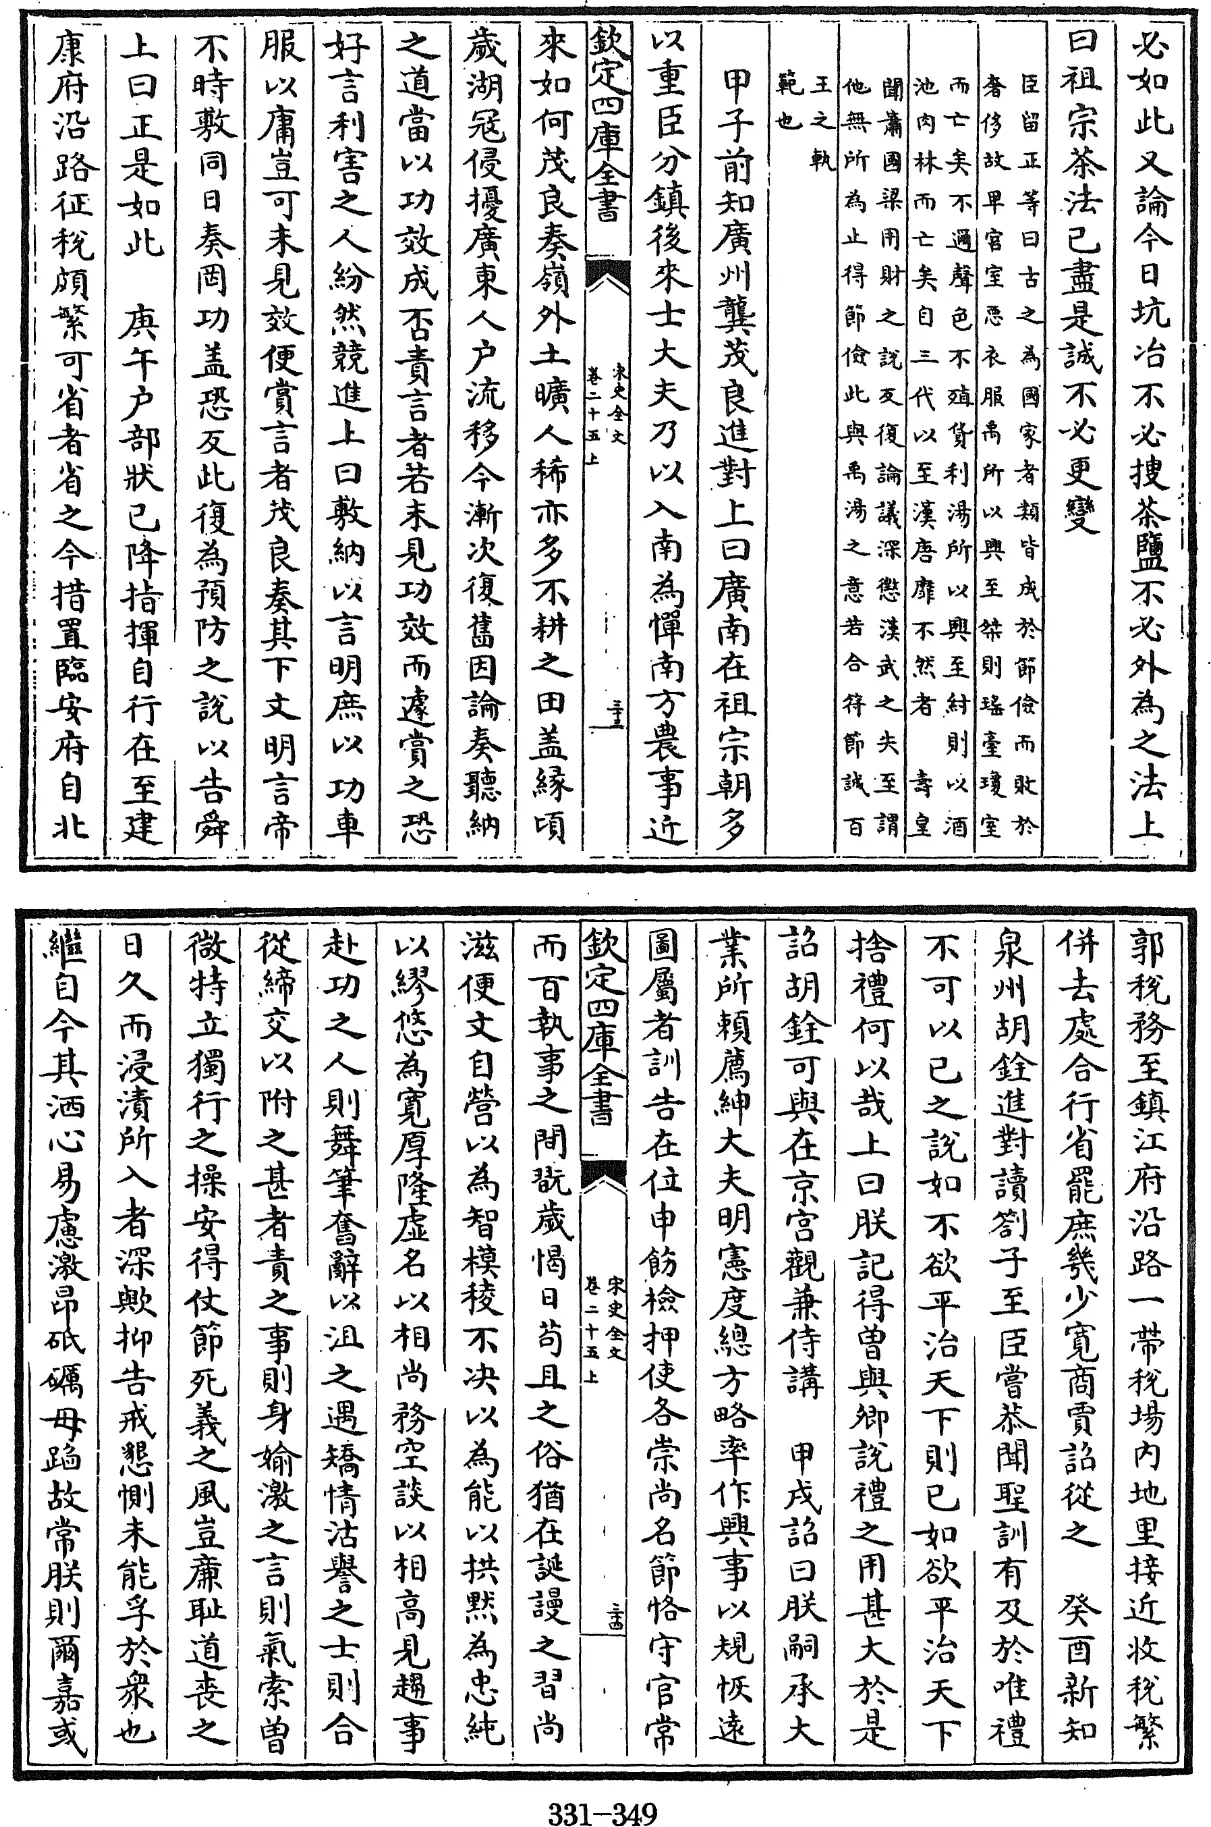 必如此又論今日坑冶不必搜茶鹽不必外為之法上
曰祖宗茶法已盡是誠不必更變
臣留正等曰古之為國家者類皆成於節儉而敗於
奢侈故卑宫室惡衣服禹所以興至桀則瑤臺瓊室
而亡矣不邇聲色不殖貨利湯所以興至紂則以酒
池肉林而亡矣自三代以至漢唐靡不然者 壽皇
聞蕭國梁用財之說反復論議深懲漢武之失至謂
他無所為止得節儉此與禹湯之意若合符節誠百
王之軌
範也
甲子前知廣州龔茂良進對上曰廣南在祖宗朝多
以重臣分鎮後來士大夫乃以入南為憚南方農事近
欽定四庫全書
宋史全文
卷二十五上
三十三
來如何茂良奏嶺外土曠人稀亦多不耕之田盖緣頃
歲湖冦侵擾廣東人户流移今漸次復舊因論奏聽納
之道當以功效成否責言者若未見功效而遽賞之恐
好言利害之人紛然競進上曰敷納以言明庶以功車
服以庸豈可未見效便賞言者茂良奏其下文明言帝
不時敷同日奏罔功盖恐反此復為預防之說以告舜
上曰正是如此 庚午户部狀已降指揮自行在至建
康府沿路征稅頗繁可省者省之今措置臨安府自北
郭稅務至鎮江府沿路一帶稅場内地里接近收稅繁
併去處合行省罷庶幾少寛商賈詔從之 癸酉新知
泉州胡銓進對讀劄子至臣嘗恭聞聖訓有及於唯禮
不可以已之說如不欲平治天下則已如欲平治天下
捨禮何以哉上曰朕記得曽與卿說禮之用甚大於是
詔胡銓可與在京宮觀兼侍講 甲戌詔曰朕嗣承大
業所頼薦紳大夫明憲度總方略率作興事以規恢遠
圖屬者訓告在位申飭檢押使各崇尚名節恪守官常
欽定四庫全書
宋史全文
卷二十五上
三十四
而百執事之間翫歲愒日苟且之俗猶在誕謾之習尚
滋便文自營以為智模稜不决以為能以拱默為忠純
以繆悠為寛厚隆虚名以相尚務空談以相高見趨事
赴功之人則舞筆奮辭以沮之遇矯情沽譽之士則合
從締交以附之甚者責之事則身媮激之言則氣索曽
微特立獨行之操安得仗節死義之風豈亷恥道丧之
日久而浸漬所入者深歟抑告戒懇惻未能孚於衆也
繼自今其洒心易慮激昂砥礪毋蹈故常朕則爾嘉或
331-349